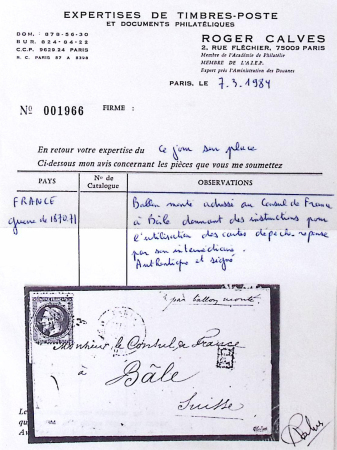 EXPERTISES DE TIMBRES-POSTE
ET DOCUMENTS PHILATÉLIQUES
DOM. : 878-56-30
BUR. : 824-64-22
C.C.P. 9629 24 PARIS
R. C. PARIS 57 A 8398
ROGER CALVES
2, RUE FLÉCHIER, 75009 PARIS
Membre de l'Académie de Philatélie
MEMBRE DE L'A.I.E.P.
Expert près l'Administration des Douanes
PARIS, LE 7.3.1984
No 001966 FIRME :
En retour votre expertise du ce jour sur place
Ci-dessous mon avis concernant les pièces que vous me soumettez
PAYS
No de Catalogue
OBSERVATIONS
FRANCE
guerre de 1870.71
Ballon monté adressé au Consul de France
à Bâle donnant des instructions pour
l'utilisation des cartes dépêche réponse
par son intermédiaire.
Authentique et signé
par ballon monté
Monsieur le Consul de France
à
Bâle
Suisse
PD
Le
qu
Au
Calves